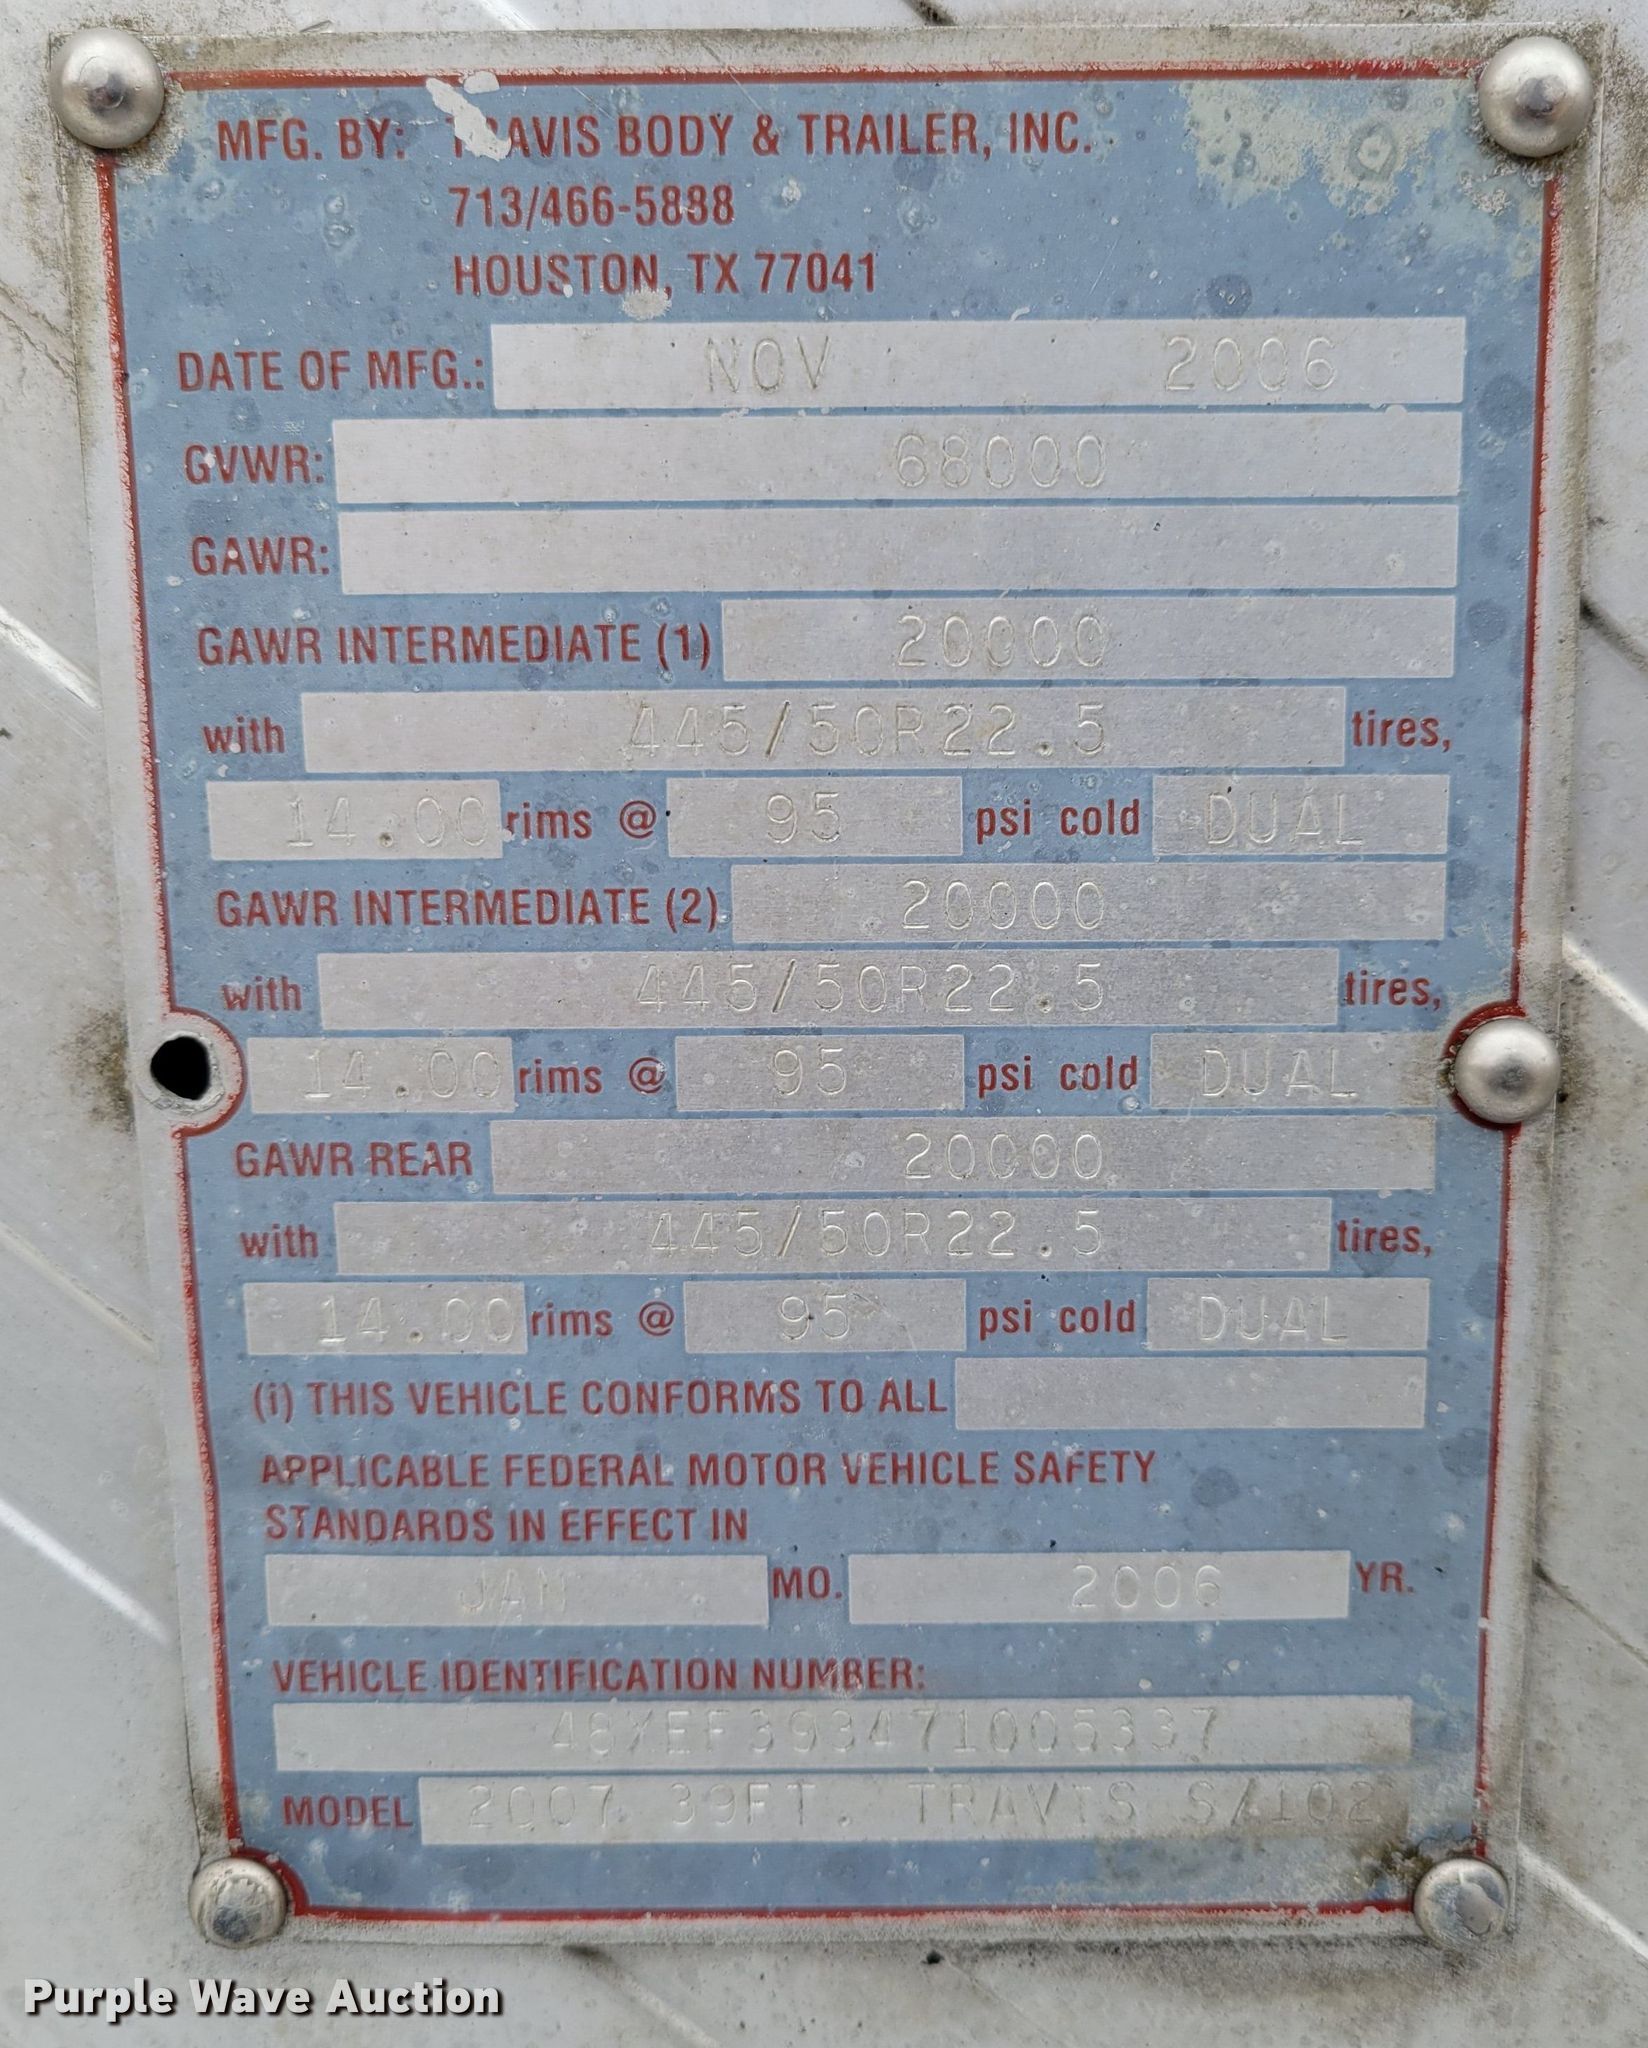 MFG. BY: TRAVIS BODY & TRAILER, INC.
713/466-5888
HOUSTON, TX 77041
DATE OF MFG.: NOV 2006
GVWR: 68000
GAWR:
GAWR INTERMEDIATE (1) 20000
with 445/50R22.5 tires,
14.00 rims @ 95 psi cold DUAL
GAWR INTERMEDIATE (2) 20000
with 445/50R22.5 tires,
14.00 rims @ 95 psi cold DUAL
GAWR REAR 20000
with 445/50R22.5 tires,
14.00 rims @ 95 psi cold DUAL
(i) THIS VEHICLE CONFORMS TO ALL
APPLICABLE FEDERAL MOTOR VEHICLE SAFETY
STANDARDS IN EFFECT IN
JAN MO. 2006 YR.
VEHICLE IDENTIFICATION NUMBER:
48XEF393471005337
MODEL 2007 39FT. TRAVIS S/102
Purple Wave Auction